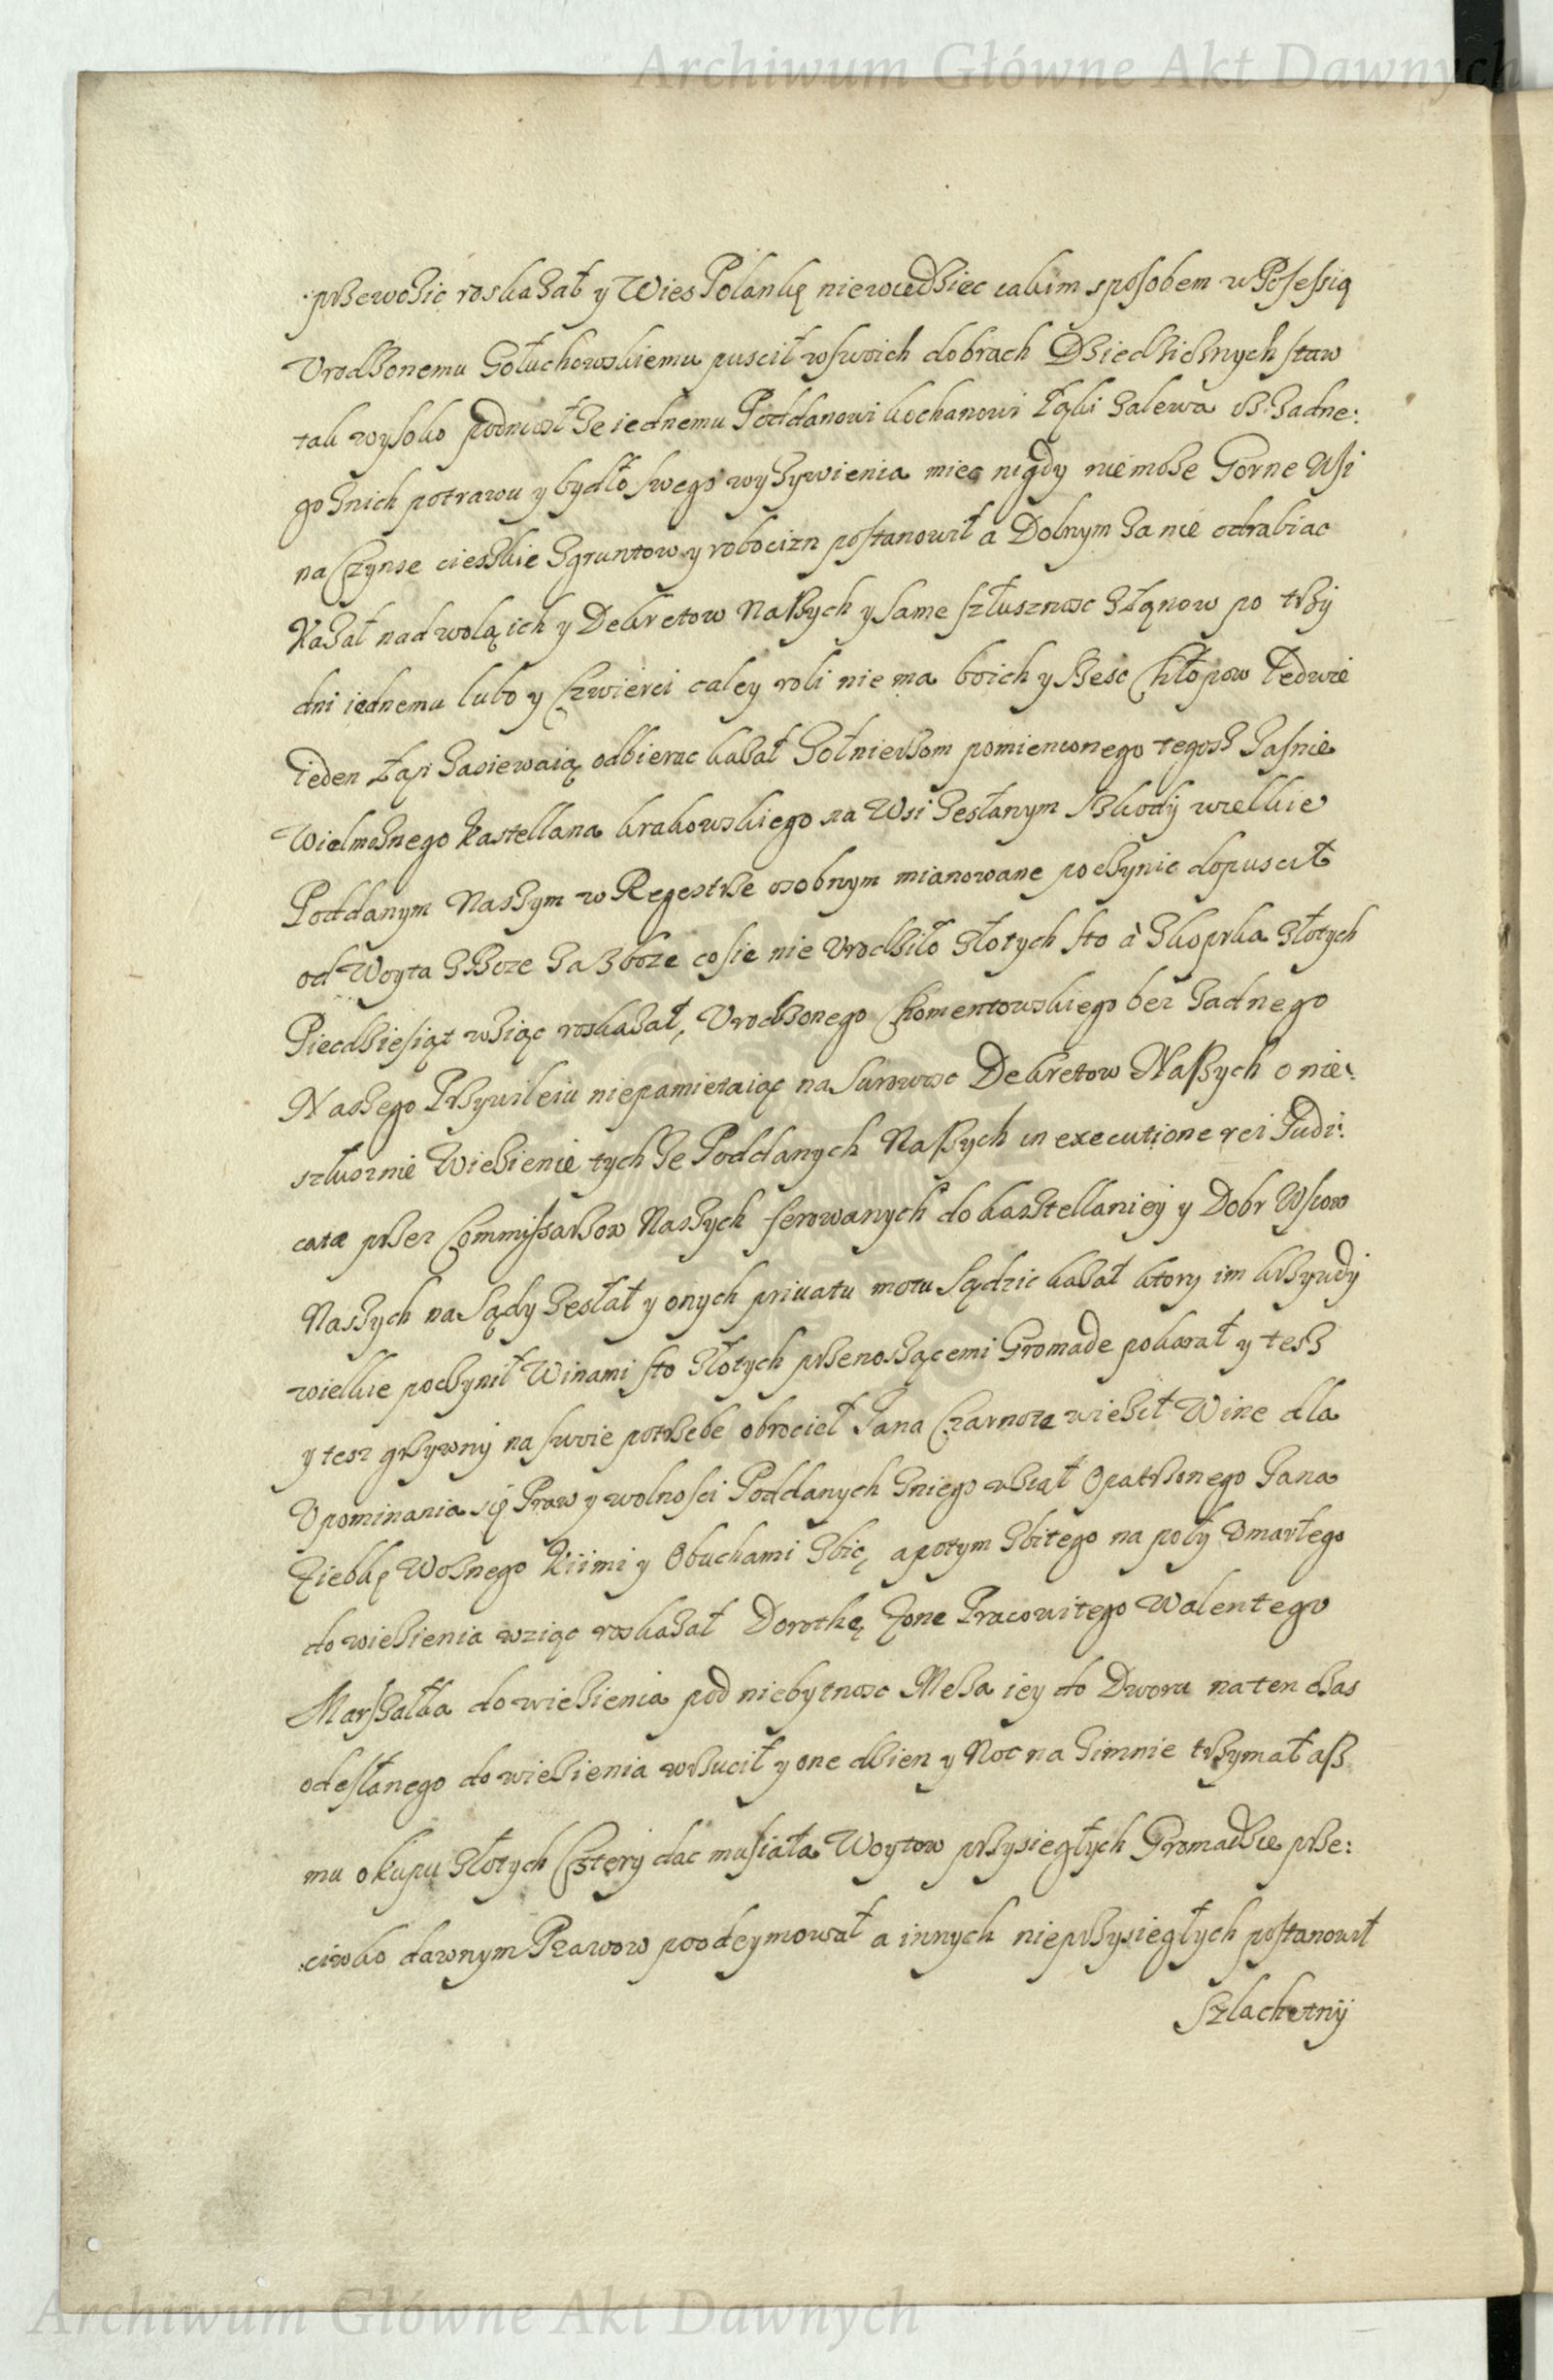 Archiwum Główne Akt Dawnych
przewozic roskazał y Wies Polankę niewiedziec iakim sposobem w Possessią
Vrodzonemu Gołuchowskiemu puscił w swoich dobrach Dziedzicznych staw
tak wysoko podniosł ze iednemu Poddanowi kochanowi Łąki zalewa iż zadne:
go znich potrawu y bydło swego wyzywienia miec nigdy niemoze Gorne Wsi
na Czynse cieszkie zgruntow y robocizn postanowił a Dolnym za nie odrabiac
Kazał nad wolą ich y Dekretow Naszych y same szłusznosc złanow po trzy
dni iednemu lubo y Czwierci caley roli nie ma boich y szesc Chłopow Ledwie
ieden Łan zasiewaią odbierac kazał Zołnierzom pomienionego tegosz Jasnie
Wielmoznego kastellana krakowskiego na Wsi zesłanym szkody wielkie
Poddanym Naszym w Regestrze osobnym mianowane poczynic dopuscił
od Woyta zboze za zboze co sie nie Vrodziło złotych sto à Skopka złotych
Piecdziesiąt wziąc roskazał, Vrodzonego Chomentowskiego bez zadnego
Naszego Przywileiu niepamietaiąc na surowosc Dekretow Naszych o nie:
szłusznie Wiezienie tych ze Poddanych Naszych in executione rei Judi:
catæ przez Commissarzow Naszych ferowanych do kasztellaniey y Dobr Wsiow
Naszych na Sądy zesłał y onych privatu motu Sądzic kazał ktory im krzywdy
wielkie poczynił Winami sto złotych przenoszącemi Gromade pokarał y tesz
y tesz grzywny na swoie potrzebe obrocieł Jana Czarnote wieził Wine dla
Vpominania się Praw y wolnosci Poddanych zniego wziął Opatrzonego Jana
Ziębkę Woznego Kiimi y Obuchami zbic, apotym zbitego na poły Vmarłego
do wiezienia wziąc roskazał Dorothę Zone Pracowitego Walentego
Marszałka do wiezienia pod niebytnosc Meza iey do Dworu na ten czas
odesłanego do wiezienia wrzucił y one dzien y Noc na zimnie trzymał asz
mu okupu złotych Cztery dac musiała Woytow przysiegłych Gromadzie prze:
ciwko dawnym Prawow poodeymował a innych nieprzysiegłych postanowił
Szlachetny
Archiwum Główne Akt Dawnych